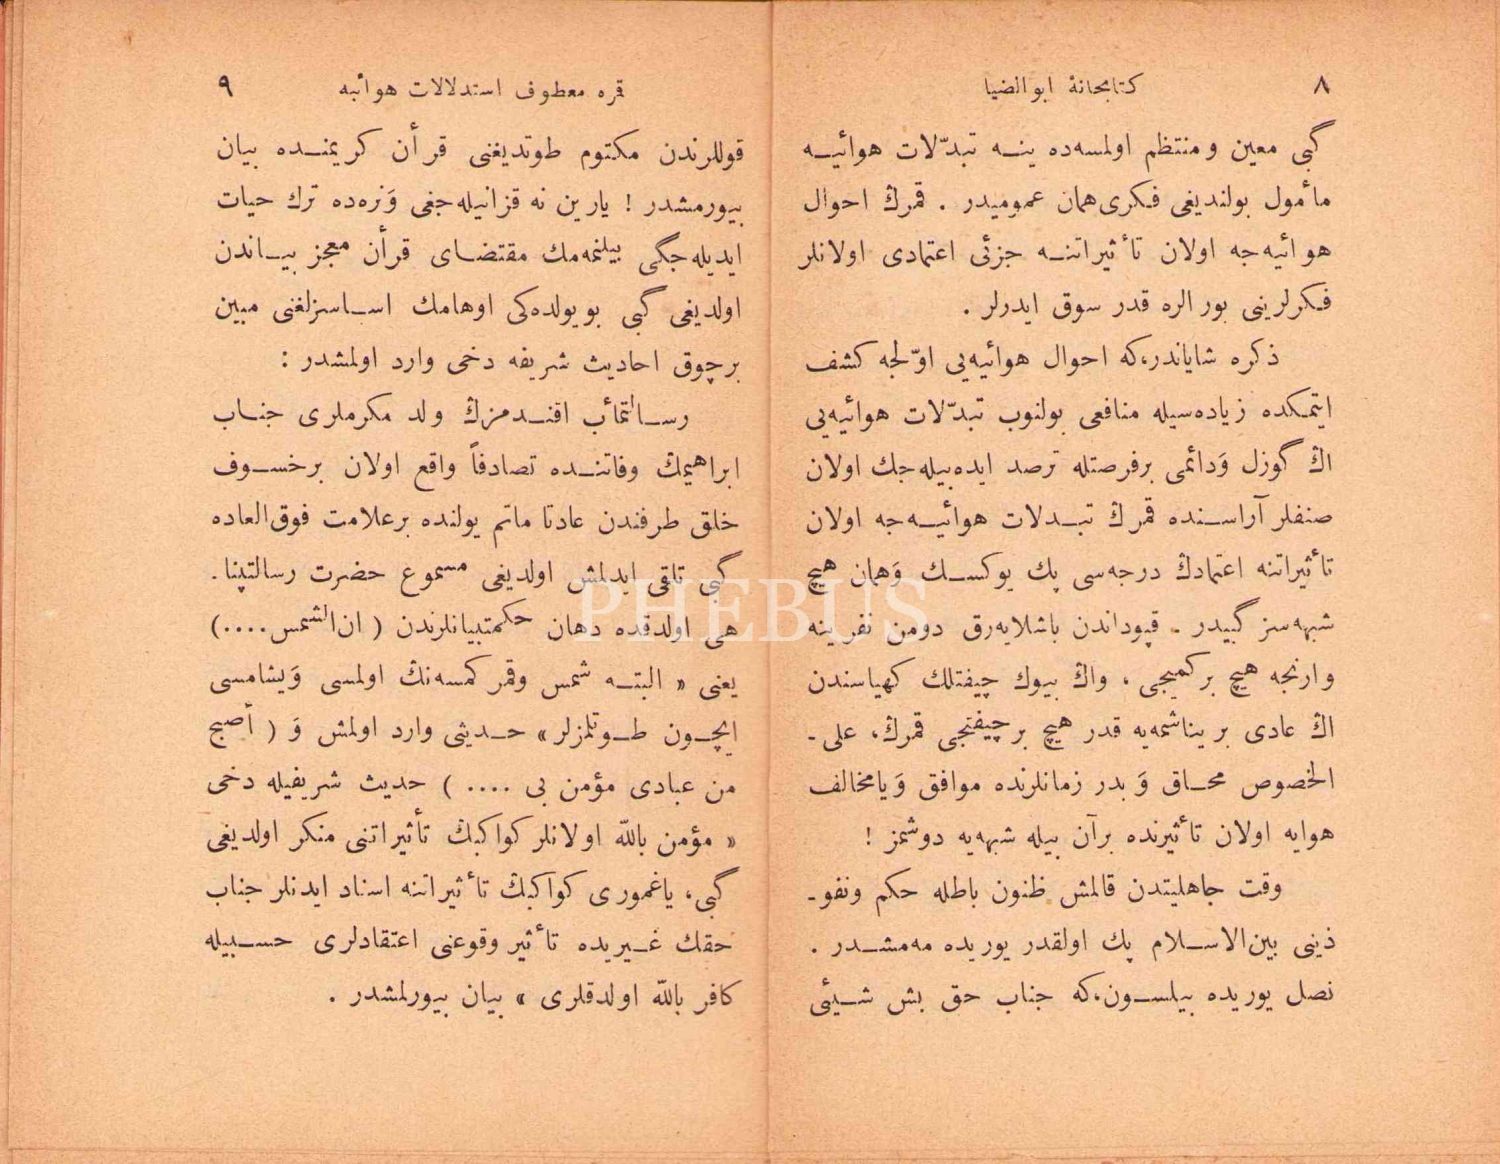 ٨
كتابخانهٔ ابوالضيا
گبى معين و منتظم اولمسه‌ده ينه تبدّلات هوائيه
مأمول بولنديغى فكرى همان عموميدر . قمرڭ احوال
هوائيه‌جه اولان تأثيراتنه جزئى اعتمادى اولانلر
فكرلرينى بورالره قدر سوق ايدرلر .
ذكره شاياندر، كه احوال هوائيه‌يى اوّلجه كشف
ايتمكده زياده‌سيله منافعى بولنوب تبدّلات هوائيه‌يى
اڭ گوزل وَدائمى برفرصتله ترصد ايده‌بيله‌جك اولان
صنفلر آراسنده قمرڭ تبدلات هوائيه‌جه اولان
تأثيراتنه اعتمادڭ درجه‌سى پك يوكسك وَهمان هيچ
شبهه‌سز گبيدر . قپوداندن باشلايه‌رق دومن نفرينه
وارنجه هيچ بر گميجى ، واڭ بيوك چيفتلك كهياسندن
اڭ عادى بر يناشمه‌يه قدر هيچ بر چيفتجى قمرڭ، على-
الخصوص محاق وَ بدر زمانلرنده موافق وَيامخالف
هوايه اولان تأثيرنده برآن بيله شبهه‌يه دوشمز !
وقت جاهليتدن قالمش ظنون باطله حكم ونفو-
ذينى بين‌الاسلام پك اولقدر يوريده مه‌مشدر .
نصل يوريده بيلسون، كه جناب حق بش شيئى
قمره معطوف استدلالات هوائيه
٩
قوللرندن مكتوم طوتديغنى قرأن كريمنده بيان
بيورمشدر ! يارين نه قزانيله‌جغى وَنره‌ده ترك حيات
ايديله‌جگى بيلنمه‌مك مقتضاى قرأن معجز بياندن
اولديغى گبى بو يولده‌كى اوهامك اساسزلغنى مبين
برچوق احاديث شريفه دخى وارد اولمشدر :
رسالتمأب افندمزڭ ولد مكرملرى جناب
ابراهيمڭ وفاتنده تصادفاً واقع اولان برخسوف
خلق طرفندن عادتا ماتم يولنده برعلامت فوق‌العاده
گبى تلقى ايدلمش اولديغى مسموع حضرت رسالتپنا-
هى اولدقده دهان حكمتبيانلرندن ( ان‌الشمس....)
يعنى « البته شمس وقمر كمسه‌نڭ اولمسى وَيشامسى
ايچون طوتلمزلر » حديثى وارد اولمش وَ ( أصبح
من عبادى مؤمن بى .... ) حديث شريفيله دخى
« مؤمن بالله اولانلر كواكبڭ تأثيراتنى منكر اولديغى
گبى، ياغمورى كواكبڭ تأثيراتنه اسناد ايدنلر جناب
حقك غيريده تأثير وقوعنى اعتقادلرى حسبيله
كافر بالله اولدقلرى » بيان بيورلمشدر .
PHEBUS